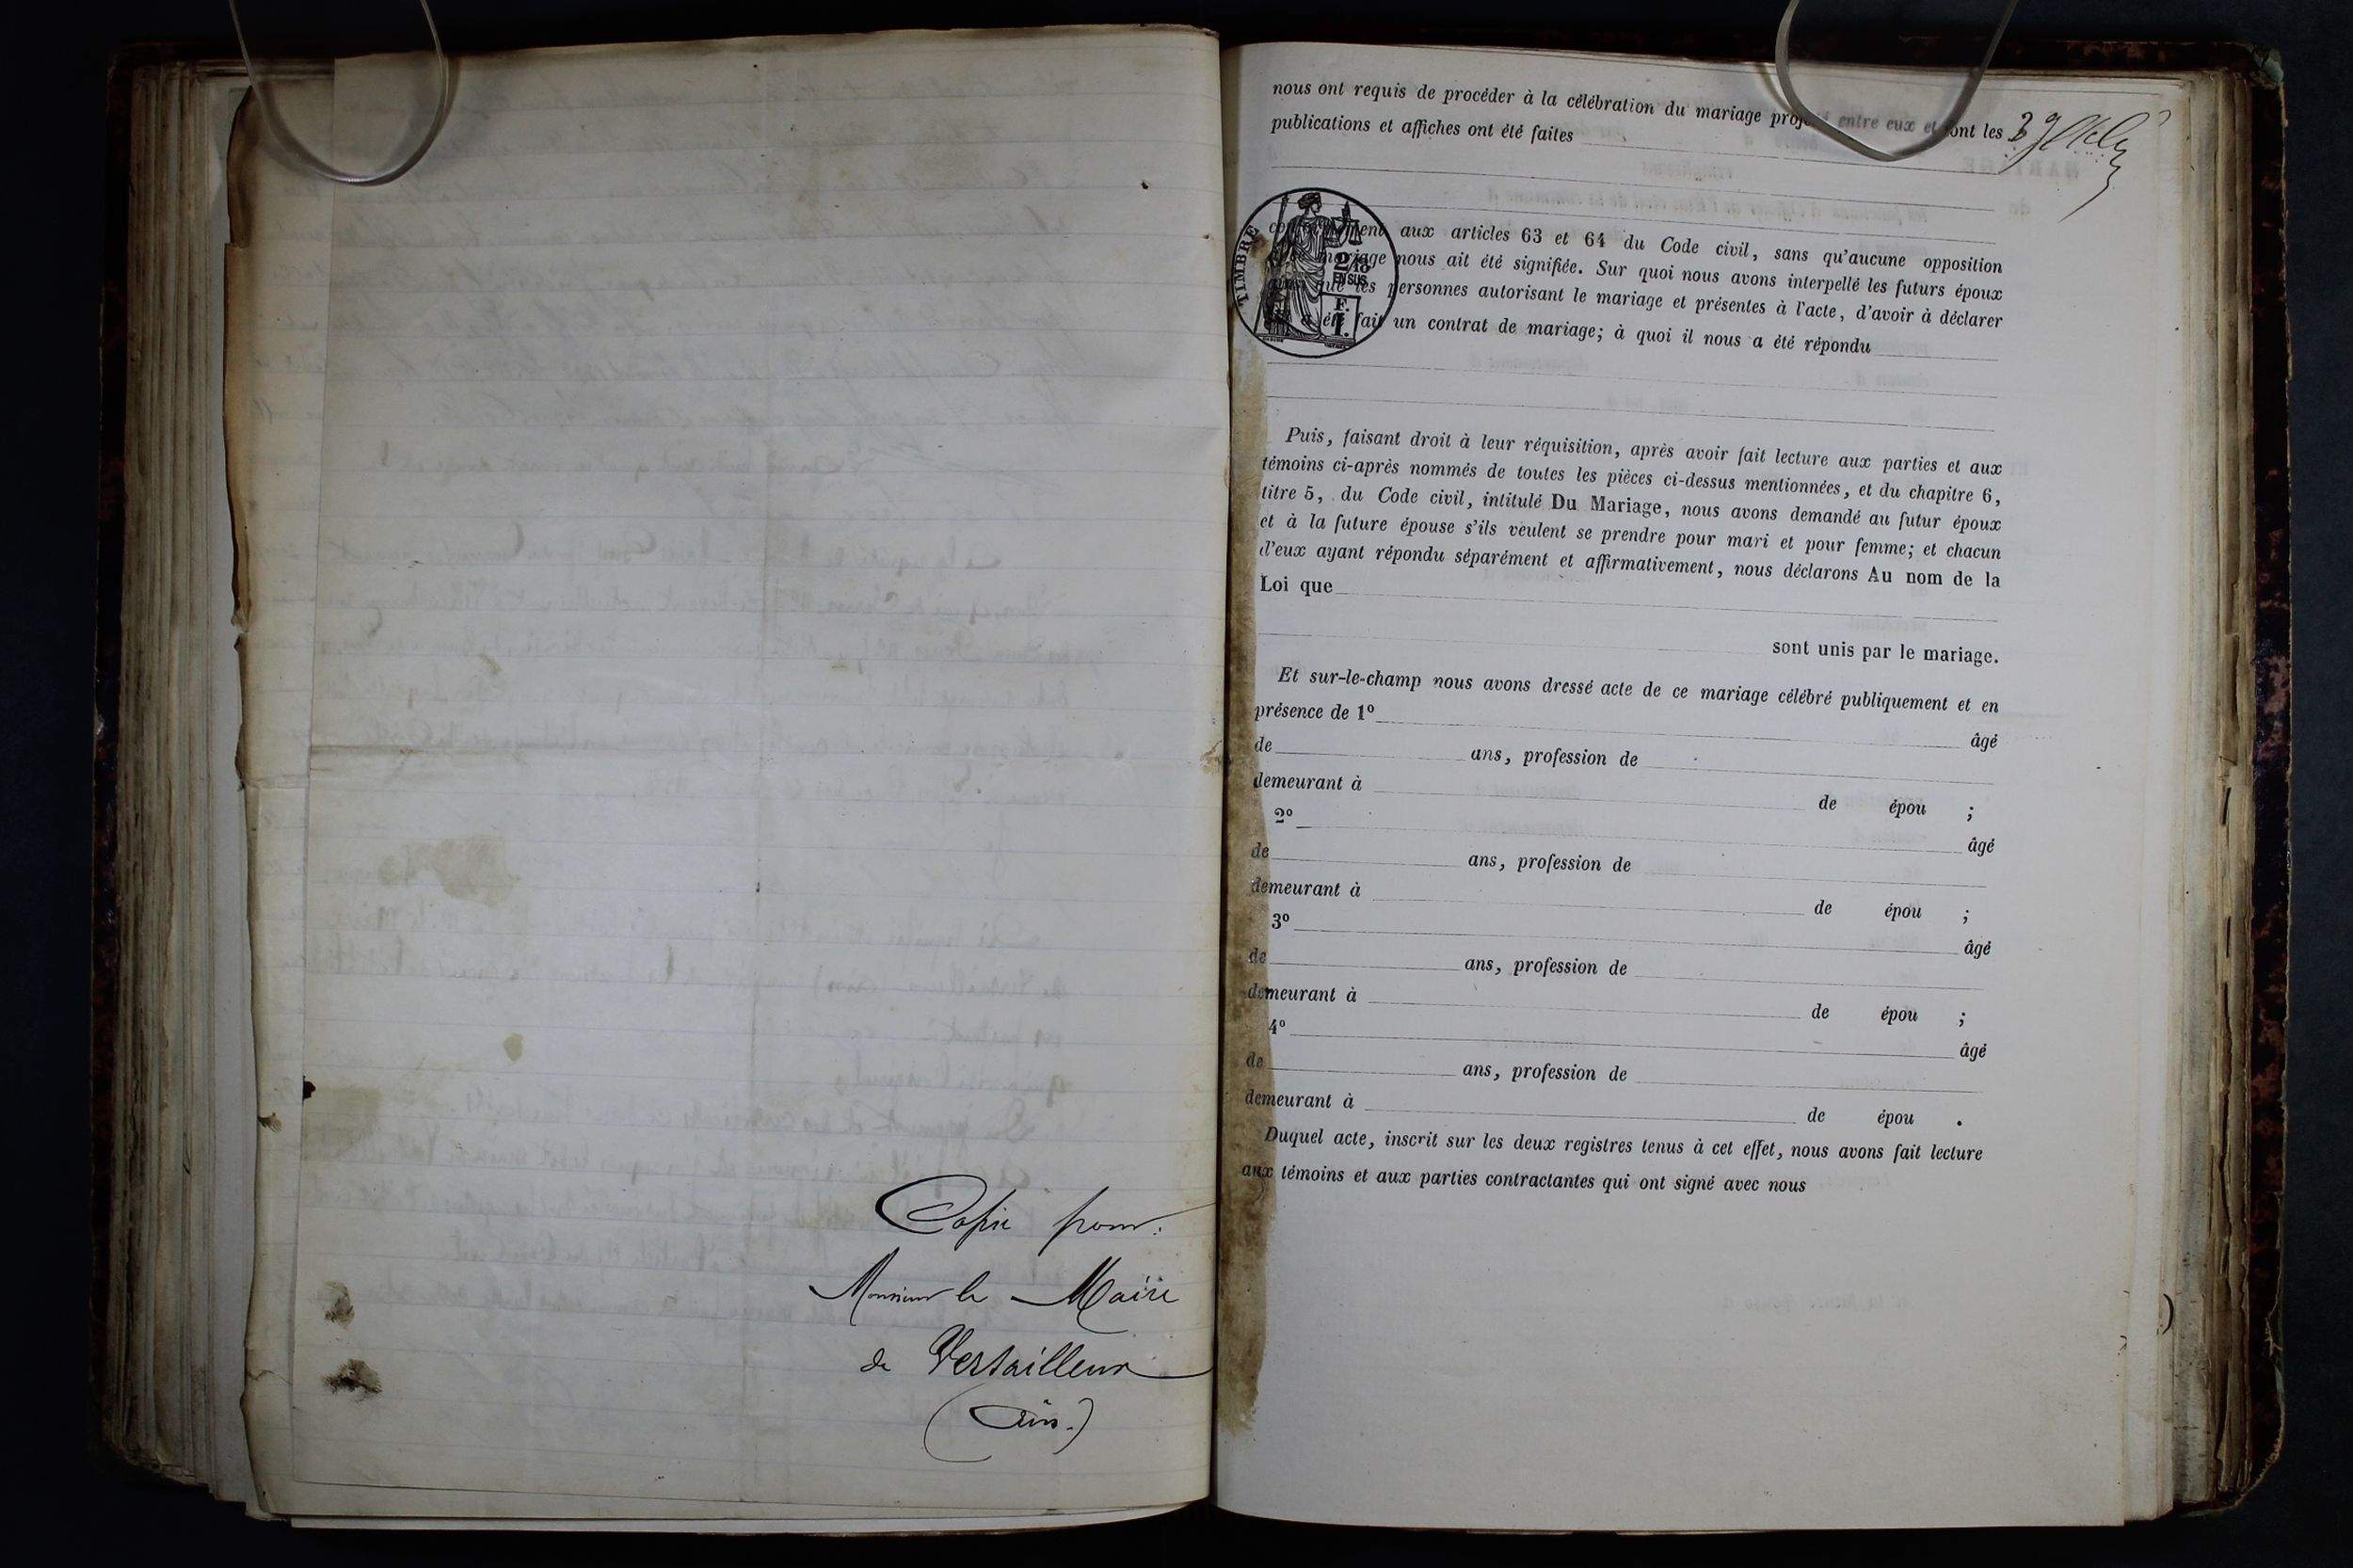 Copie pour:
Monsieur le Maire
de Versailleux
(Ain.)
nous ont requis de procéder à la célébration du mariage projeté entre eux et dont les
publications et affiches ont été faites
TIMBRE
2/10
EN SUS
F.
1.
conformément aux articles 63 et 64 du Code civil, sans qu'aucune opposition
mariage nous ait été signifiée. Sur quoi nous avons interpellé les futurs époux
ainsi que les personnes autorisant le mariage et présentes à l'acte, d'avoir à déclarer
a été fait un contrat de mariage; à quoi il nous a été répondu
Puis, faisant droit à leur réquisition, après avoir fait lecture aux parties et aux
témoins ci-après nommés de toutes les pièces ci-dessus mentionnées, et du chapitre 6,
titre 5, du Code civil, intitulé Du Mariage, nous avons demandé au futur époux
et à la future épouse s'ils veulent se prendre pour mari et pour femme; et chacun
d'eux ayant répondu séparément et affirmativement, nous déclarons Au nom de la
Loi que
sont unis par le mariage.
Et sur-le-champ nous avons dressé acte de ce mariage célébré publiquement et en
présence de 1º âgé
de ans, profession de
demeurant à de épou ;
2º âgé
de ans, profession de
demeurant à de épou ;
3º âgé
de ans, profession de
demeurant à de épou ;
4º âgé
de ans, profession de
demeurant à de épou .
Duquel acte, inscrit sur les deux registres tenus à cet effet, nous avons fait lecture
aux témoins et aux parties contractantes qui ont signé avec nous